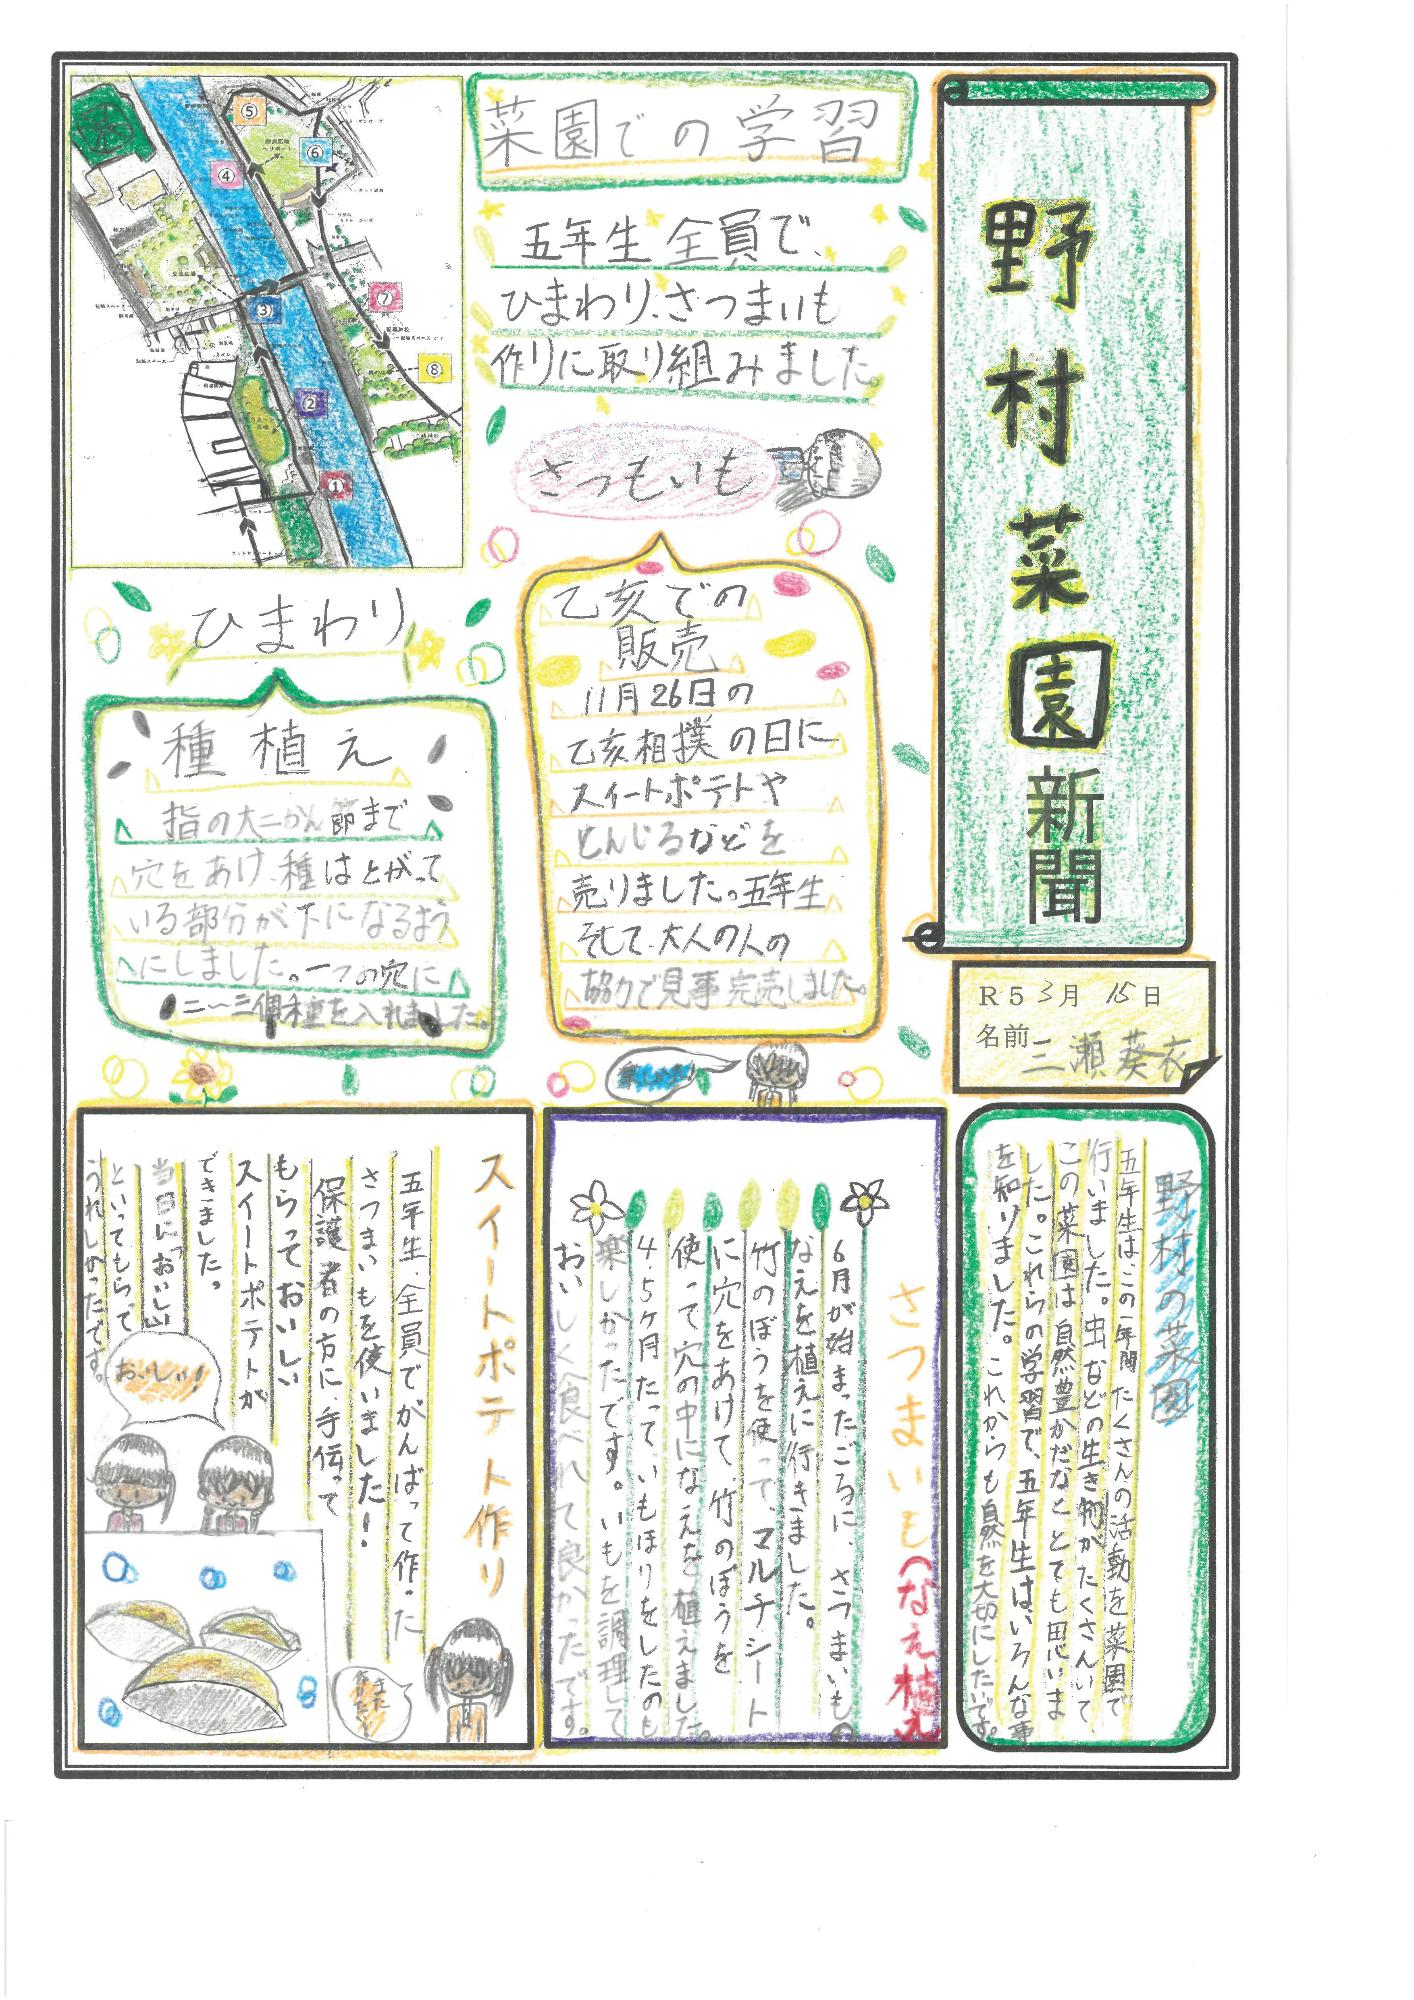 野村菜園新聞
R5 3月 15日
名前 二瀬葵衣
野村の菜園
五年生は、この一年間たくさんの活動を菜園で
行いました。虫などの生き物がたくさんいて、
この菜園は自然豊かだなととても思いま
した。これらの学習で、五年生は、いろんな事
を知りました。これからも自然を大切にしたいです。
菜園での学習
五年生全員で、
ひまわり、さつまいも
作りに取り組みました。
さつもいも
乙亥での
販売
11月26日の
乙亥相撲の日に
スイートポテトや
とんじるなどを
売りました。五年生
そして、大人の人の
協力で見事完売しました。
楽しかった
①
②
③
④
⑤
⑥
⑦
⑧
ひまわり
種植え
指の大二かん節まで
穴をあけ、種はとがって
いる部分が下になるよう
にしました。一つの穴に
二〜三個種を入れました。
さつまいも(なえ植え
6月が始まったごろに、さつまいもの
なえを植えに行きました。
竹のぼうを使って、マルチシート
に穴をあけて、竹のぼうを
使って穴の中になえを植えました。
4、5ヶ月たって、いもほりをしたのも
楽しかったです。いもを調理して
おいしく食べれて良かったです。
スイートポテト作り
五年生、全員でがんばって作った
さつまいもを使いました!
保護者の方に、手伝って
もらっておいしい
スイートポテトが
できました。
当日に「おいしい」
といってもらって
うれしかったです。
おいしい!
また
作りたい